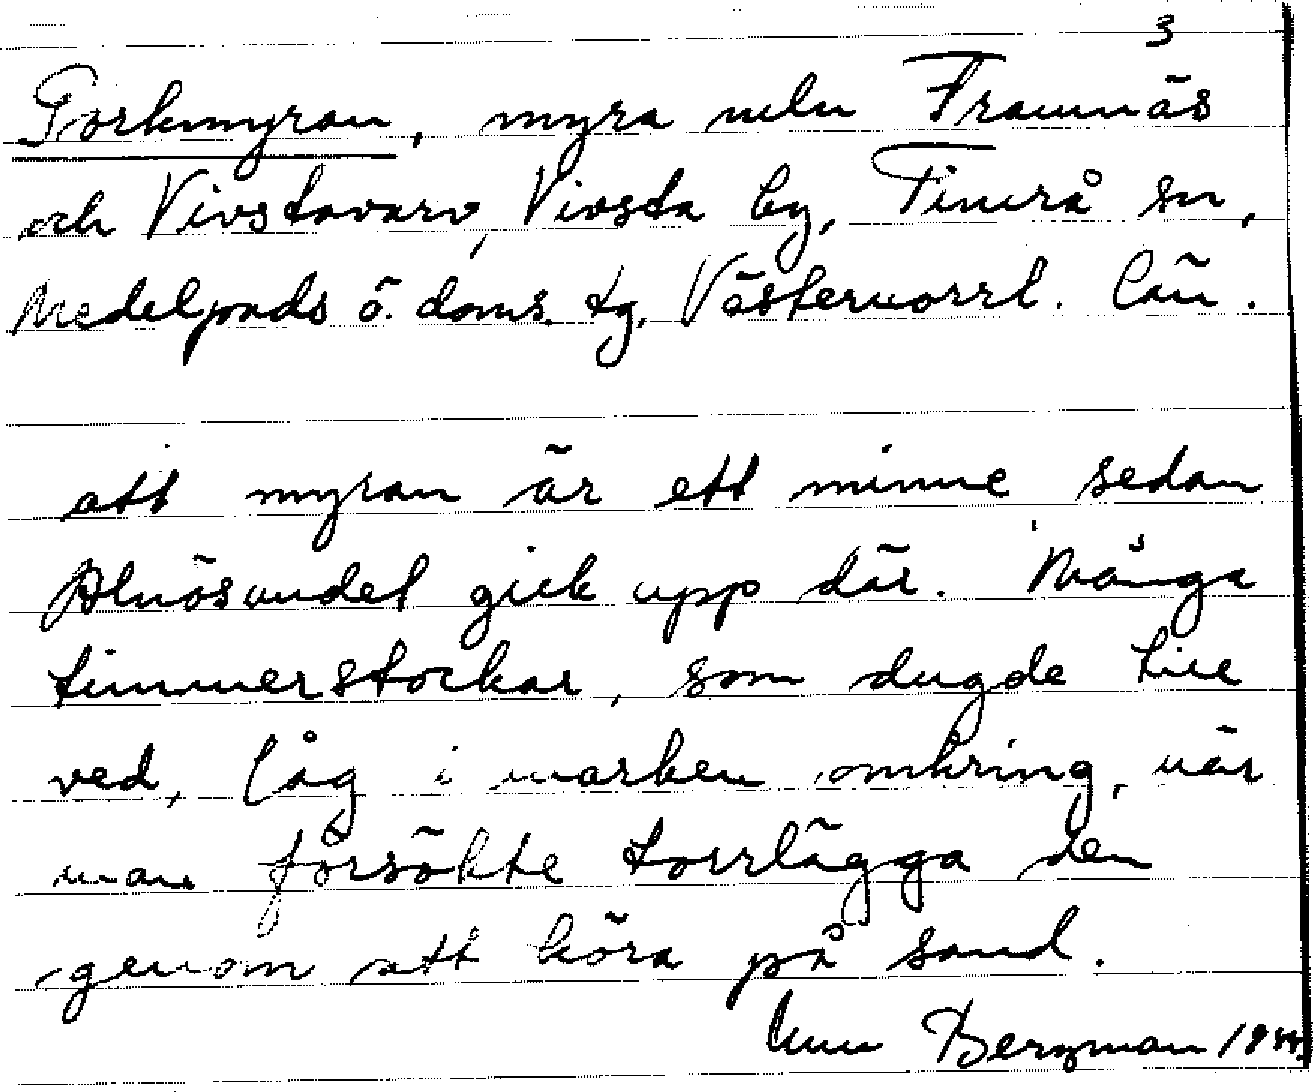 3
Gorkmyran, myra meln Framnäs
och Vivstavarv, Vivsta by, Timrå sn,
Medelpads ö. doms. tg. Västernorrl. län.
att myran är ett minne sedan
Alnösundet gick upp där. Många
timmerstockar, som dugde till
ved, låg i marken omkring, när
man försökte torrlägga den
genom att köra på sand.
Bergman 1944